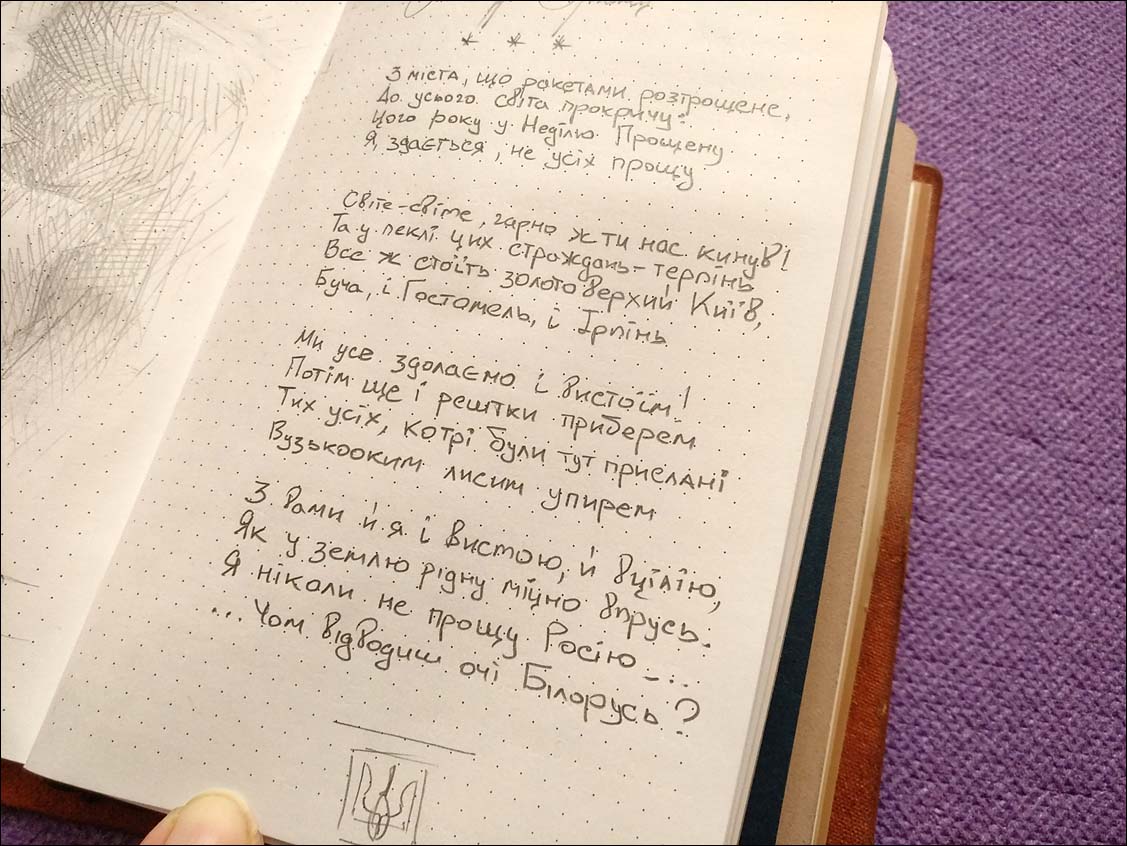 * * *
З міста, що ракетами розтрощене,
До усього світа прокричу:
Цього року у Неділю Прощену
Я, здається, не усіх прощу
Світе-світе, гарно ж ти нас кинув!
Та у пеклі цих страждань-терпінь
Все ж стоїть золотоверхий Київ,
Буча, і Гостомель, і Ірпінь
Ми усе здолаємо і вистоїм!
Потім ще і рештки приберем
Тих усіх, котрі були тут прислані
Вузькооким лисим упирем
З вами й я і вистою, й вцілію,
Як у землю рідну міцно впрусь.
Я ніколи не прощу Росію...
... Чом відводиш очі Білорусь?